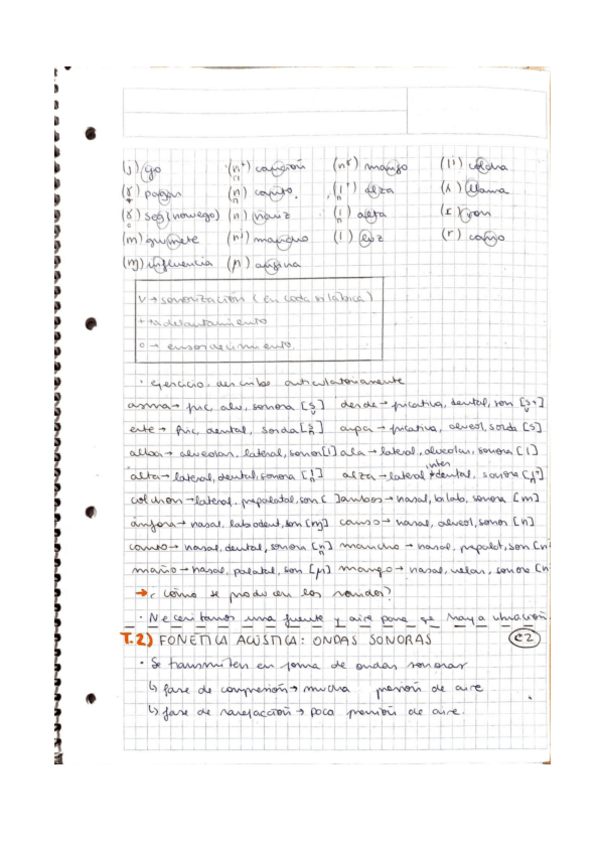 (j) yo (n+) canción (nɣ) mango (li) colcha
(ɣ) pagar (n) canto (l+) alza (ʎ) llama
(ɣ) seg(noruego) (n) nariz (l) alta (r) ron
(m) gumete (nʲ) mancho (l) luz (r) canjo
(ɱ) influencia (ɲ) angina
v → sonorización (en coda silábica)
+ → adelantamiento
o → ensordecimiento
· ejercicio: describe articulatoriamente
asma → fric, alv, sonora [s] desde → fricativa, dental, son [s+]
este → fric, dental, sorda [s] aspa → fricativa, alveol, sorda [s]
alloa → alveolar, lateral, sonor [l] ala → lateral, alveolar, sonora [l]
alta → lateral, dental, sonora [l] alza → lateral inter dental, sonora [l+]
colchon → lateral, prepalatal, son [ ] ambos → nasal, bilab, sonora [m]
ánfora → nasal, labodent, son [ɱ] canso → nasal, alveol, sonor [n]
canto → nasal, dental, sonora [n] mancho → nasal, prepalat, son [n
maño → nasal, palatal, son [ɲ] mango → nasal, velar, sonora [n
→ ¿cómo se producen los sonidos?
· Necesitamos una fuente y aire para qe haya vibración
T.2) FONÉTICA ACÚSTICA: ONDAS SONORAS C2
· Se transmiten en forma de ondas sonoras
↳ fase de compresión → mucha presión de aire
↳ fase de rarefacción → poca presión de aire.